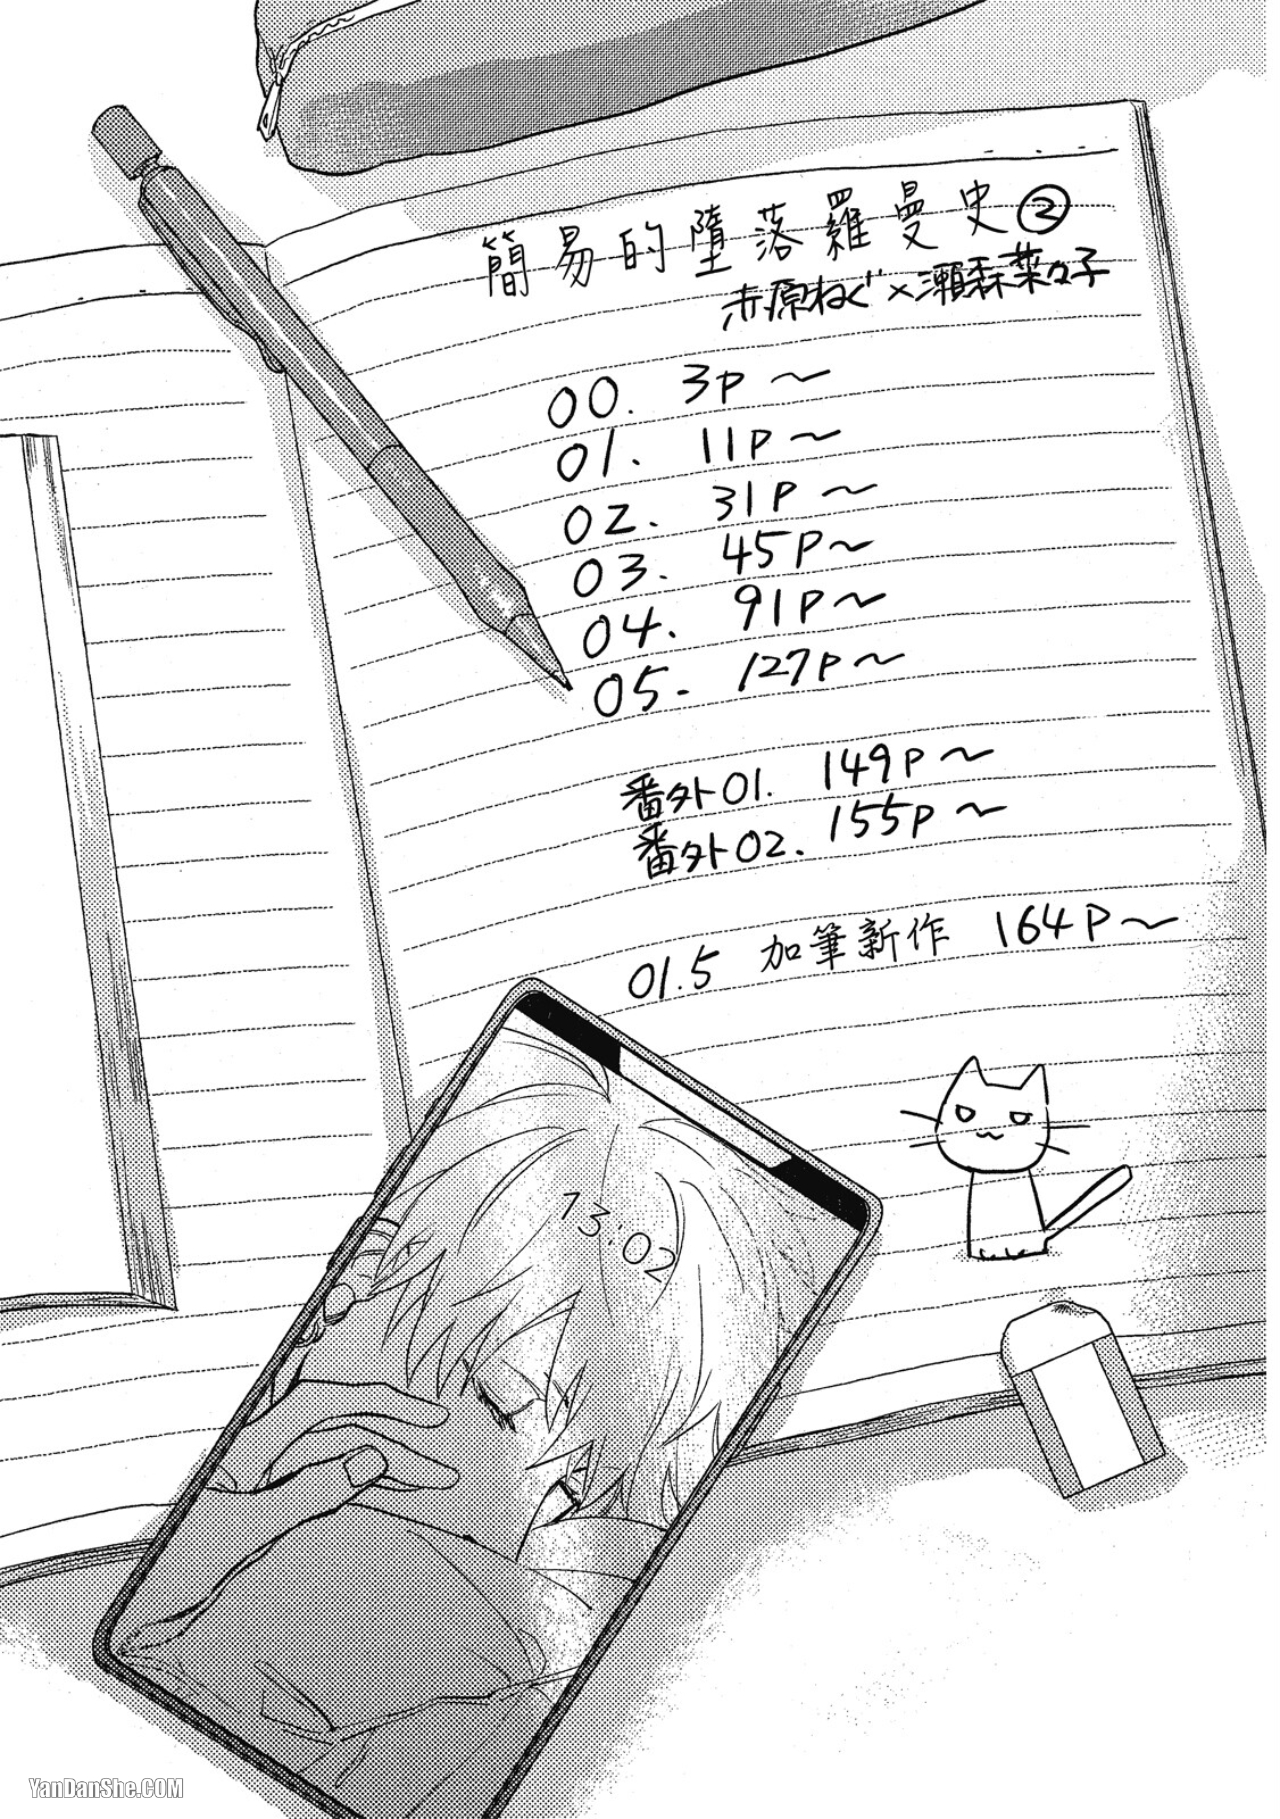 簡易的墮落羅曼史②
赤原ねぐ×瀬森菜々子
00. 3p～
01. 11p～
02. 31p～
03. 45p～
04. 91p～
05. 127p～
番外01. 149p～
番外02. 155p～
01.5 加筆新作 164p～
13:02
YanDanShe.COM